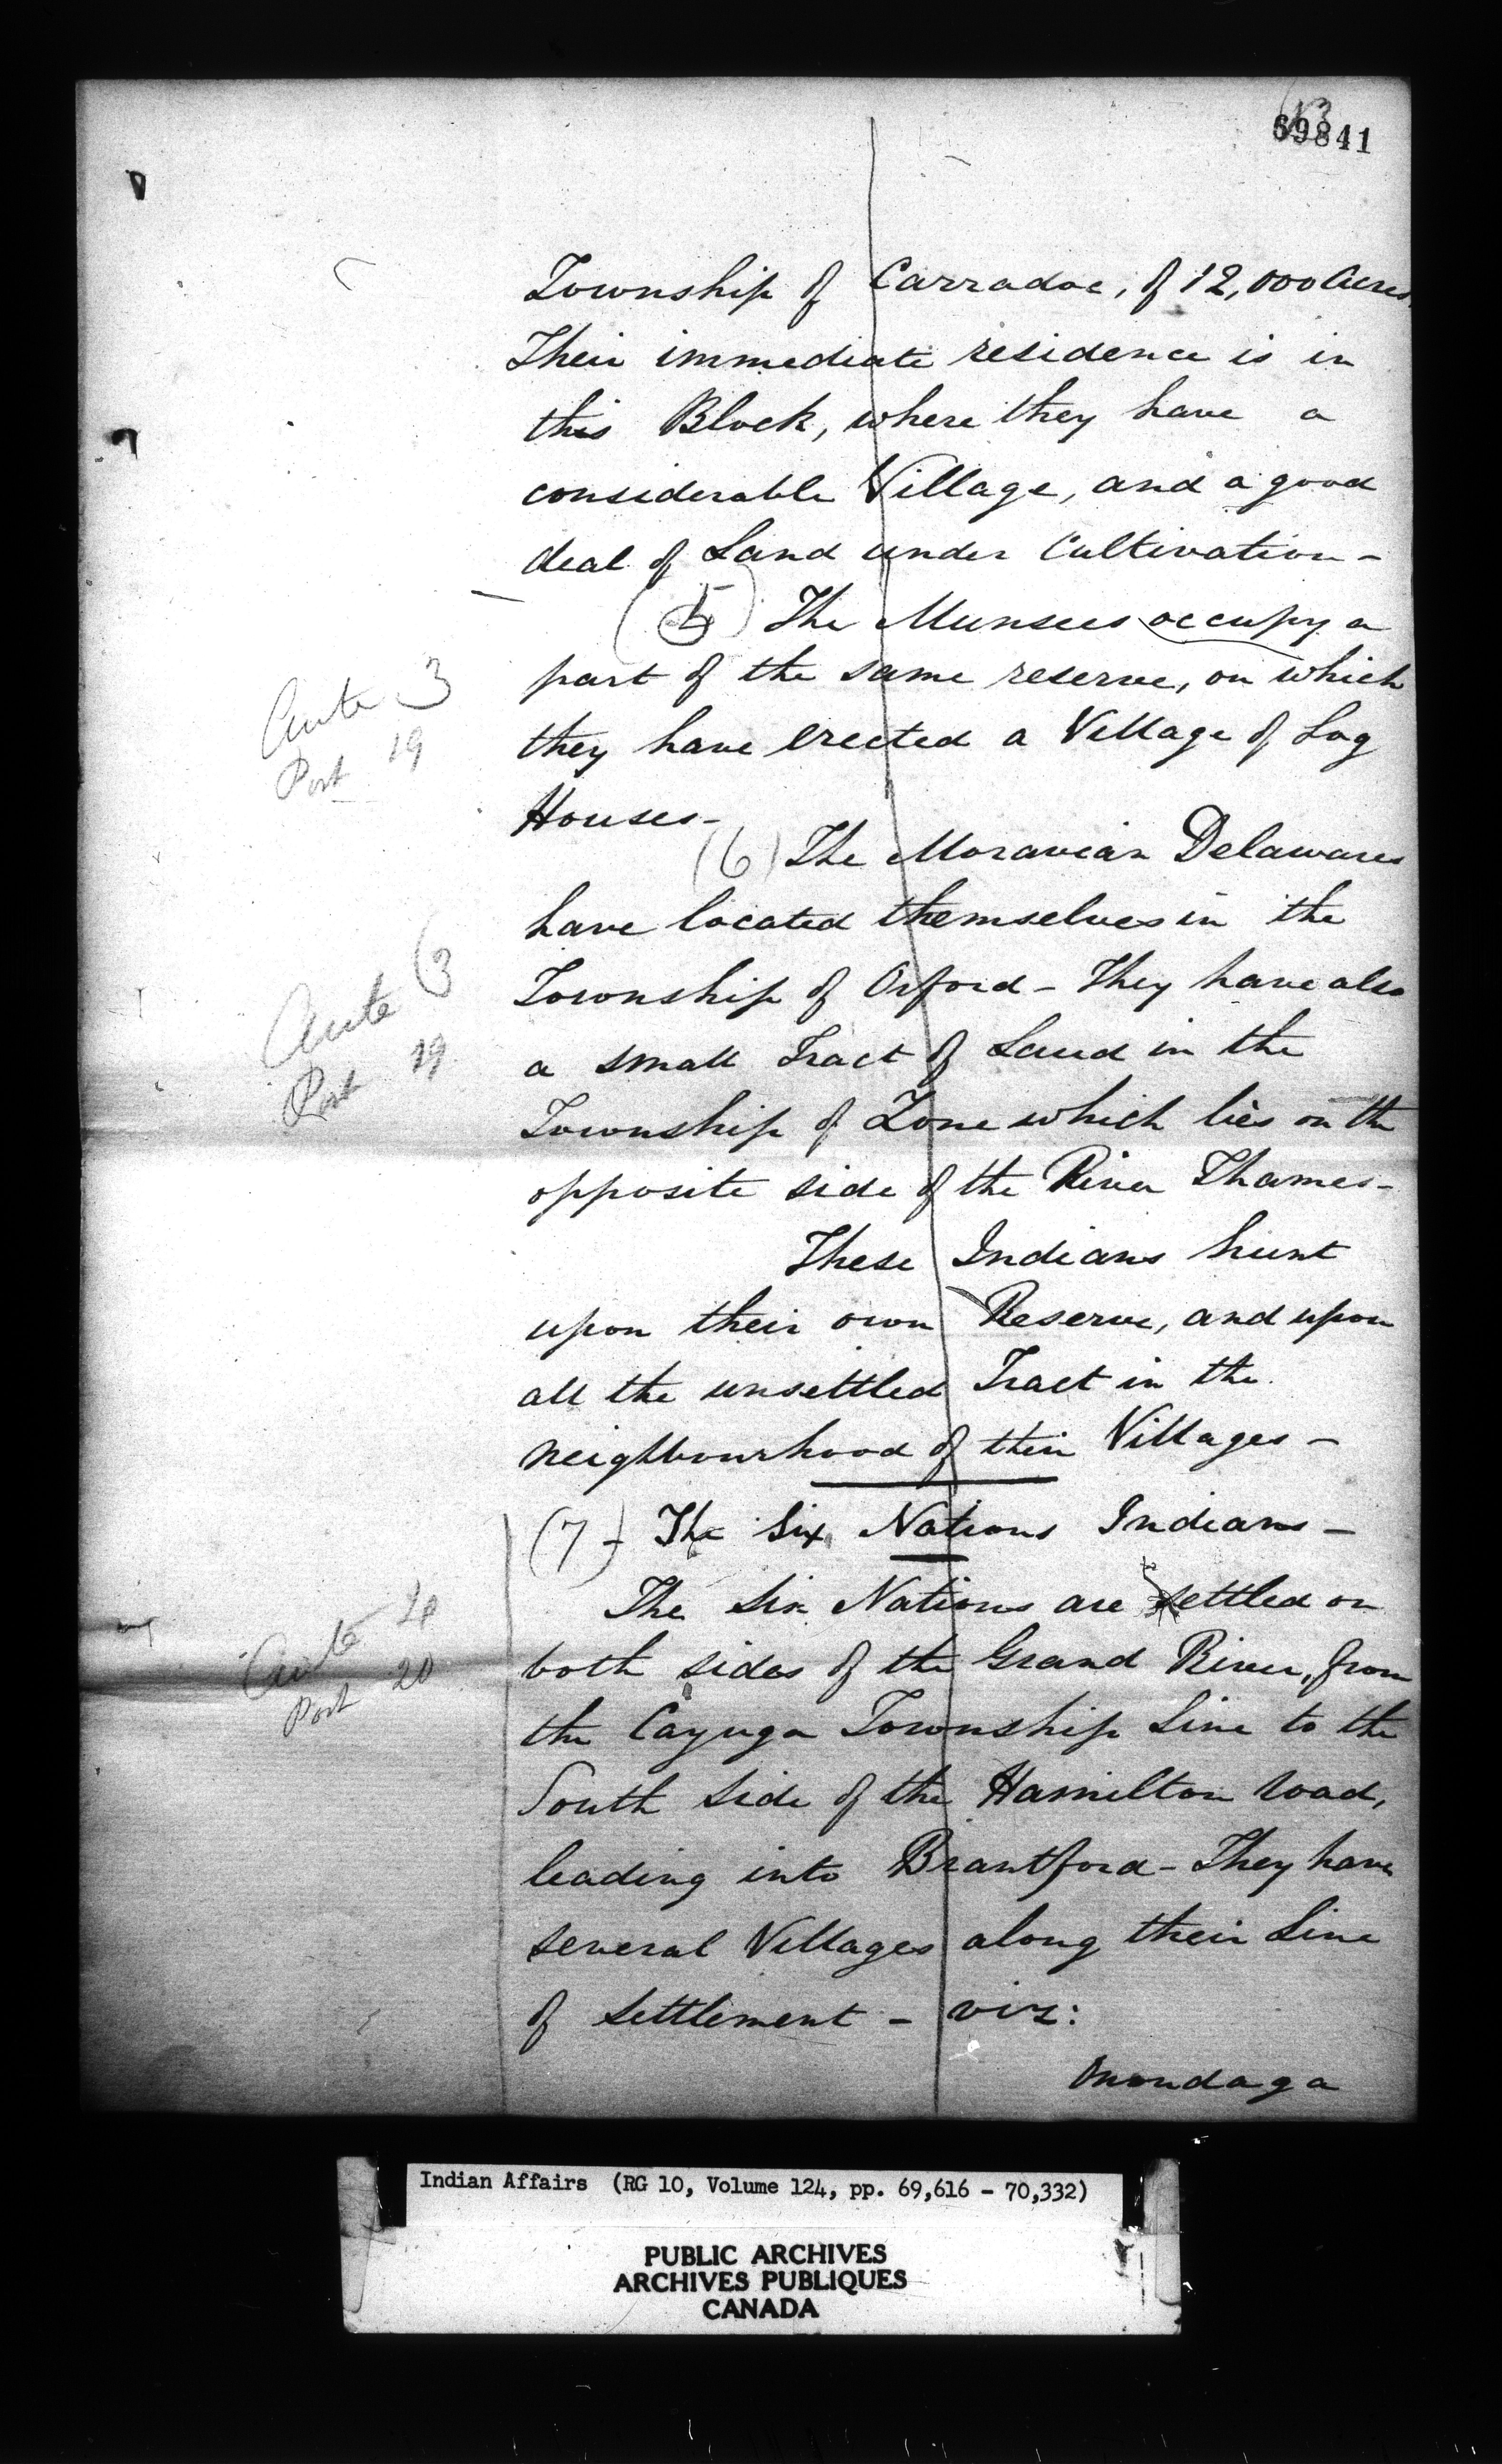 13
69841
Township of Carradoc, of 12,000 Acres.
Their immediate residence is in
this Block, where they have a
considerable Village, and a good
deal of Land under Cultivation -
(5) The Munsees occupy a
part of the same reserve, on which
they have erected a Village of Log
Houses -
Ante 3
Post 19
(6) The Moravian Delawares
have located themselves in the
Township of Orford - They have also
a small Tract of Land in the
Township of Zone which lies on the
opposite side of the River Thames -
Ante 3
Post 19
These Indians hunt
upon their own Reserve, and upon
all the unsettled Tract in the
neighbourhood of their Villages -
(7) - The Six Nations Indians -
The Six Nations are settled on
both sides of the Grand River, from
the Cayuga Township Line to the
South side of the Hamilton road,
leading into Brantford - They have
several Villages along their Line
of settlement - viz:
Ante
Post 20
Onondaga
Indian Affairs (RG 10, Volume 124, pp. 69,616 - 70,332)
PUBLIC ARCHIVES
ARCHIVES PUBLIQUES
CANADA